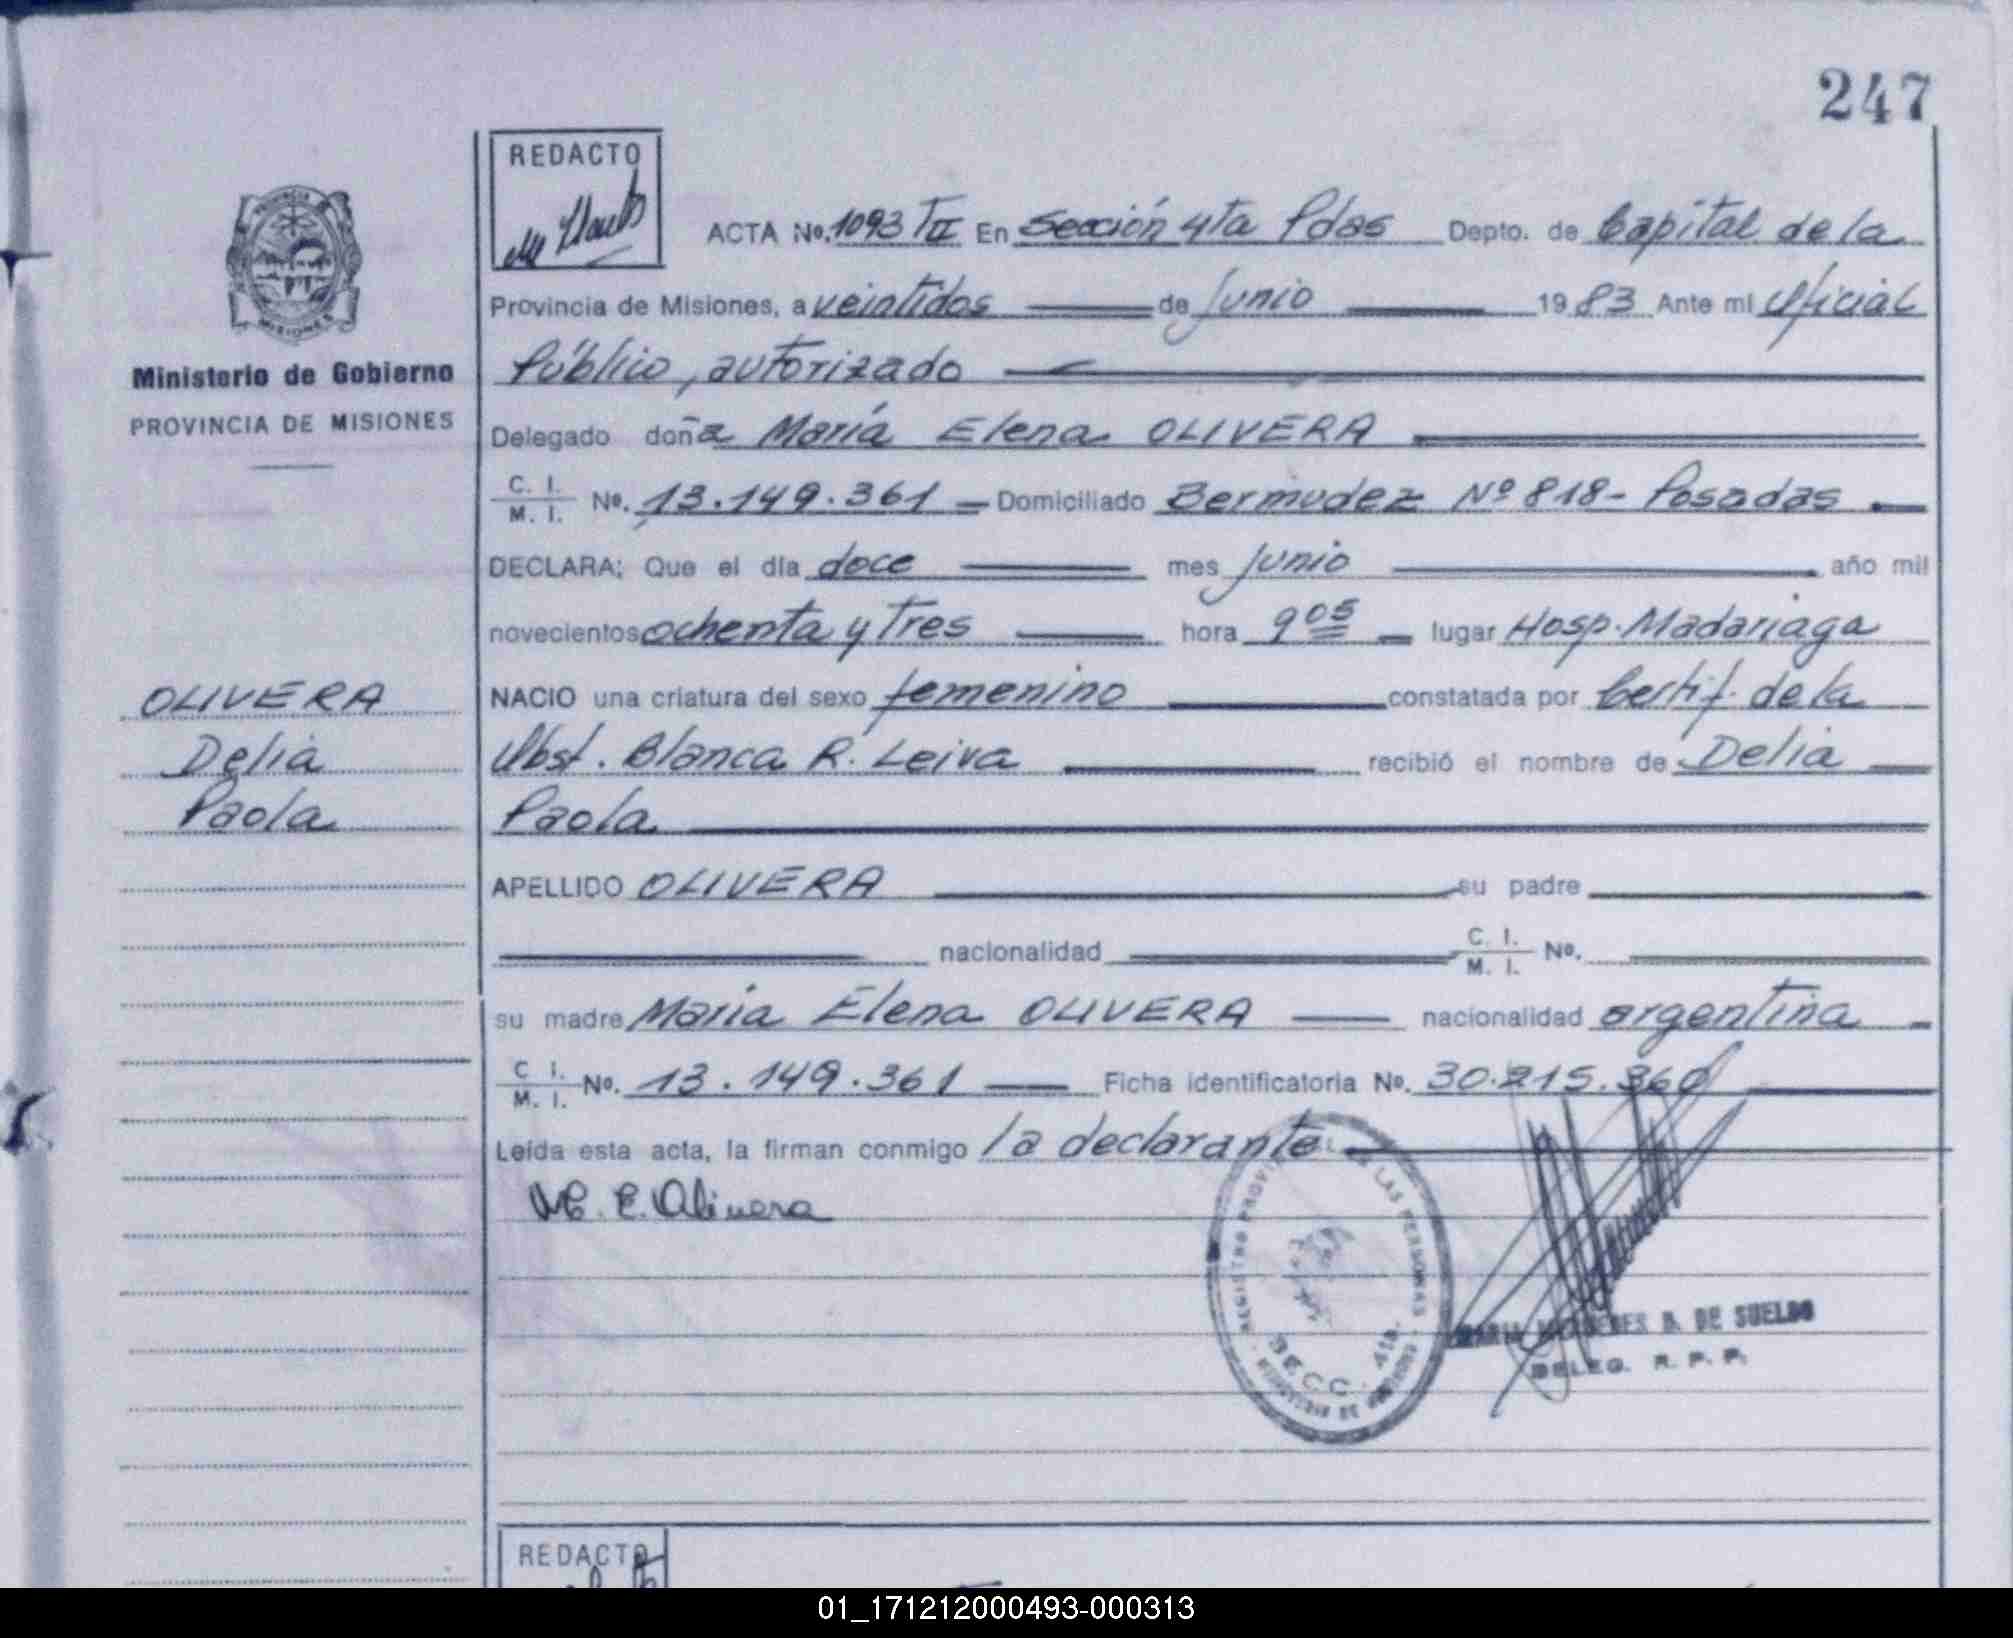 247
REDACTO
ACTA No. 1093 TII En Sección 4ta Pdas Depto. de Capital de la
Provincia de Misiones, a veintidos de Junio 1983 Ante mi Oficial
Público, autorizado
Ministerio de Gobierno
PROVINCIA DE MISIONES
Delegado doña María Elena OLIVERA
C. I. M. I. No. 13.149.361 Domiciliado Bermudez Nº 818 - Posadas
DECLARA: Que el día doce mes Junio año mil
novecientos ochenta y Tres hora 9 05 lugar Hosp. Madariaga
OLIVERA
Delia
Paola
NACIO una criatura del sexo femenino constatada por Certif. de la
Obst. Blanca R. Leiva recibió el nombre de Delia
Paola
APELLIDO OLIVERA su padre
nacionalidad C. I. M. I. No.
su madre Maria Elena OLIVERA nacionalidad argentina
C I. M. I. No. 13.149.361 Ficha identificatoria No. 30.215.360
Leída esta acta, la firman conmigo la declarante
M. E. Olivera
REGISTRO PROVINCIAL DE LAS PERSONAS
SECC. 4ta.
DE SUELDO
DELEG. R. P. P.
REDACTO
01_171212000493-000313